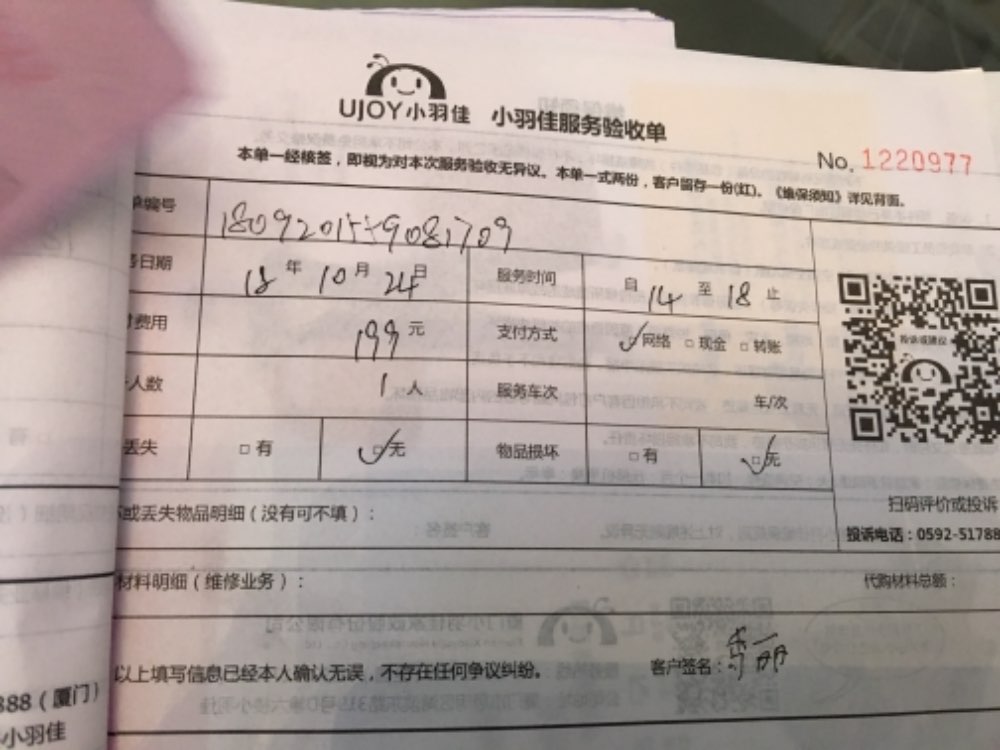 UJOY小羽佳 小羽佳服务验收单
No. 1220977
本单一经核签，即视为对本次服务验收无异议。本单一式两份，客户留存一份(红)。《维保须知》详见背面。
编号
日期 18 年 10 月 24 日 服务时间 自 14 至 18 止
费用 199 元 支付方式 ☑网络 □现金 □转账
人数 1 人 服务车次 车/次
丢失 □有 ☑无 物品损坏 □有 ☑无
扫码评价或投诉
或丢失物品明细（没有可不填）：
投诉电话：0592-51788
材料明细（维修业务）： 代购材料总额：
以上填写信息已经本人确认无误，不存在任何争议纠纷。 客户签名：
888（厦门）
小羽佳